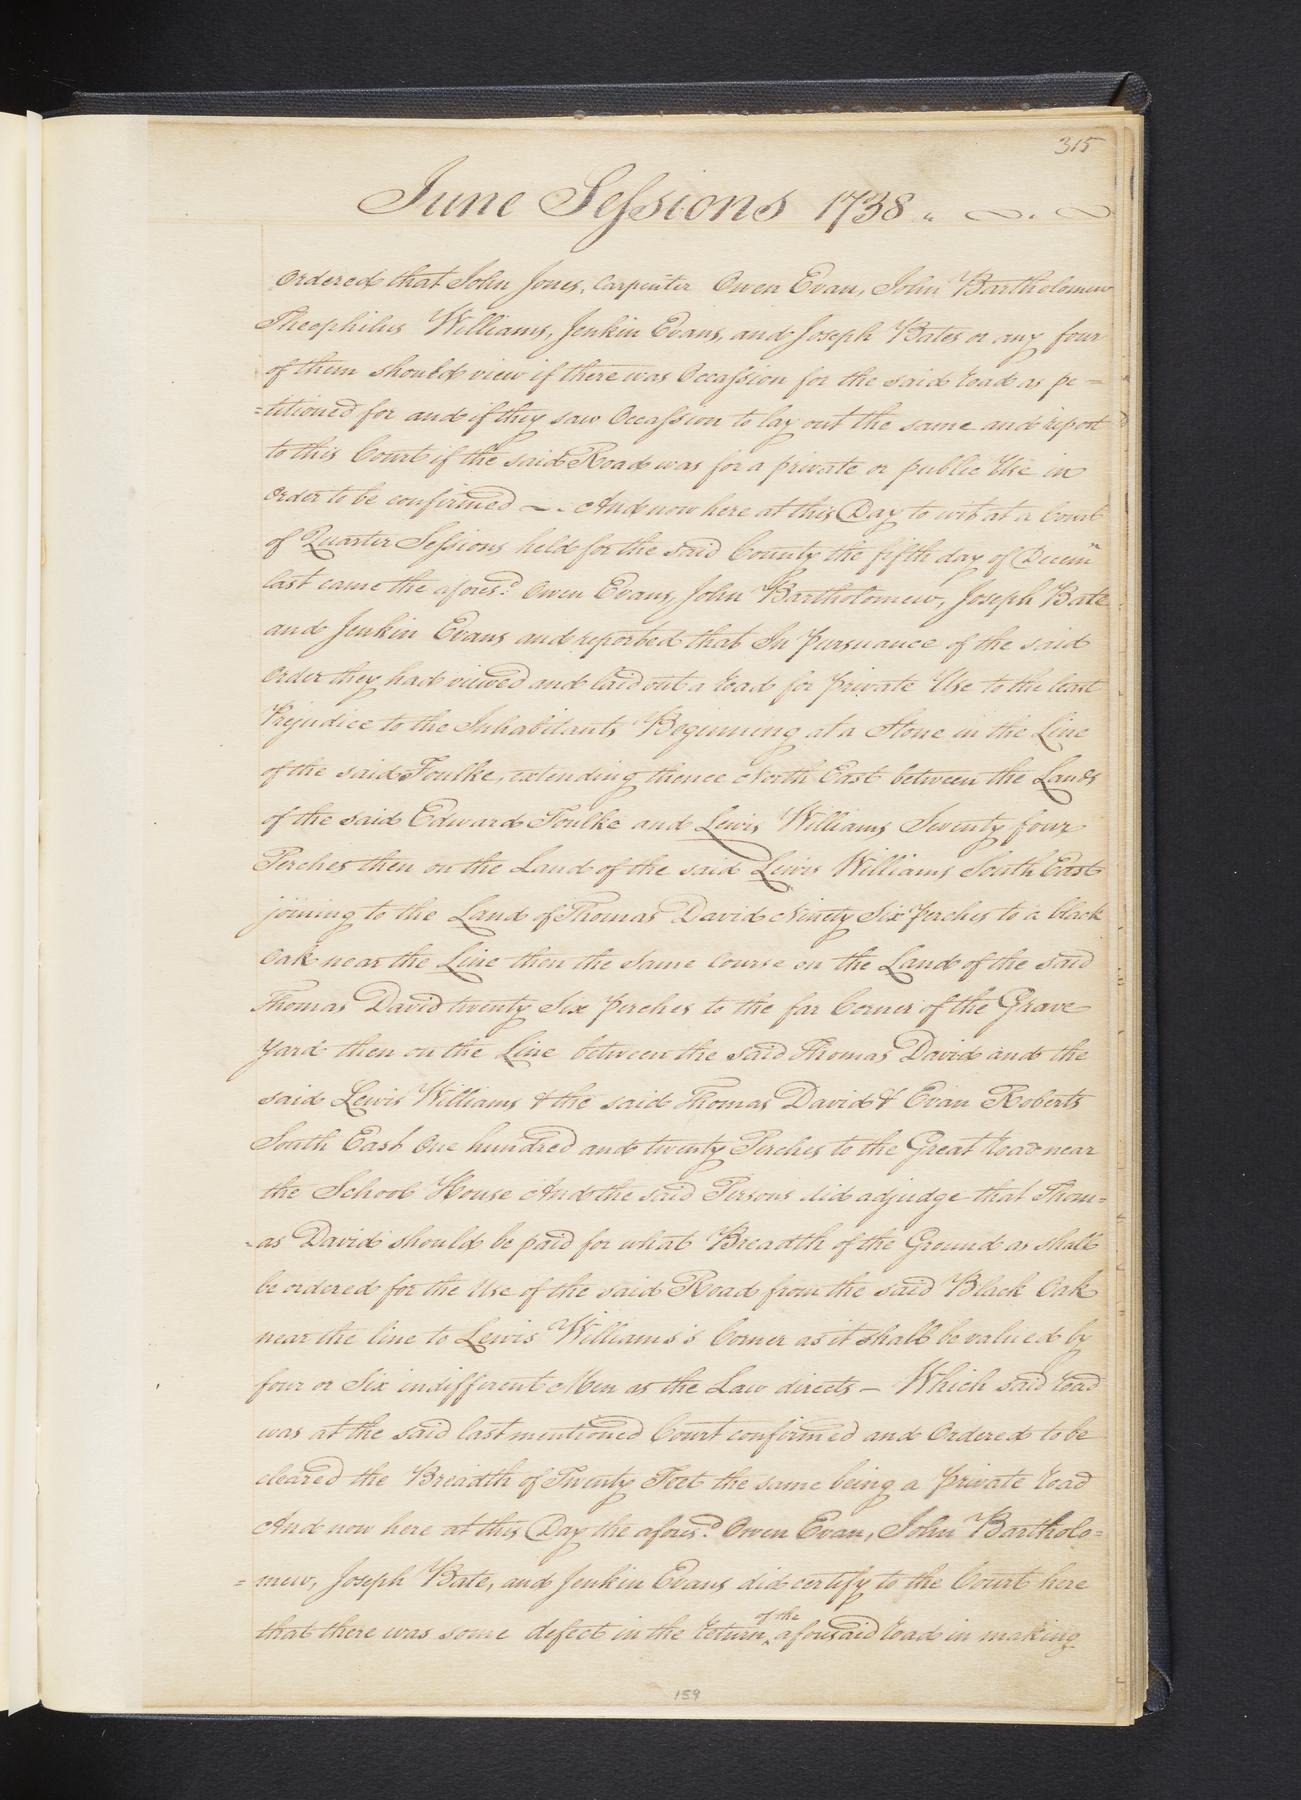 315
June Sessions 1738
Ordered that John Jones, Carpenter Owen Evan, John Bartholomew
Theophilus Williams, Jenkin Evans, and Joseph Bates or any four
of them should view if there was Occassion for the said road as pe=
=titioned for and if they saw Occassion to lay out the same and report
to this Court if the said Road was for a private or public Use in
Order to be confirmed — And now here at this Day to wit at a Court
of Quarter Sessions held for the said County the fifth day of Decem.r
last came the afores.d Owen Evans, John Bartholomew, Joseph Bate
and Jenkin Evans and reported that In pursuance of the said
Order they had viewed and laid out a road for private Use to the least
Prejudice to the Inhabitants Beginning at a Stone in the Line
of the said Foulke, extending thence North East between the Lands
of the said Edward Foulke and Lewis Williams Seventy four
Perches then on the Land of the said Lewis Williams South East
joining to the Land of Thomas David Ninety Six perches to a black
Oak near the Line then the same Course on the Land of the said
Thomas David twenty Six perches to the far Corner of the Grave
Yard then on the Line between the said Thomas David and the
said Lewis Williams & the said Thomas David & Evan Roberts
South East One hundred and twenty Perches to the Great road near
the School House And the said Persons did adjudge that Thom=
=as David should be paid for what Breadth of the Ground as shall
be ordered for the Use of the said Road from the said Black Oak
near the line to Lewis Williams's Corner as it shall be valued by
four or Six indifferent Men as the Law directs — Which said road
was at the said last mentioned Court confirmed and Ordered to be
cleared the Breadth of Twenty Feet the same being a private road
And now here at this Day the afores.d Owen Evan, John Bartholo=
=mew, Joseph Bate, and Jenkin Evans did certify to the Court here
that there was some defect in the return ^of the aforesaid road in making
159